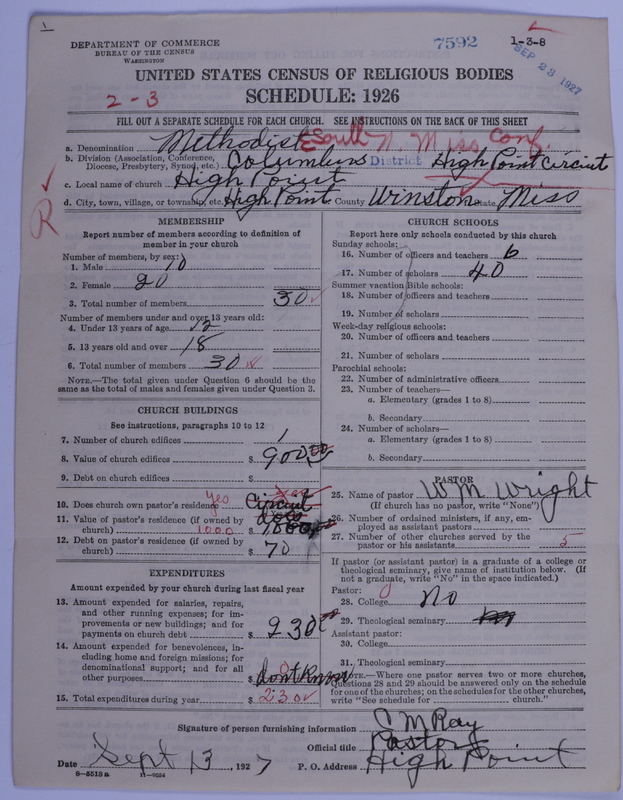 1
DEPARTMENT OF COMMERCE
BUREAU OF THE CENSUS
WASHINGTON
7592
1-3-8
SEP 23 1927
UNITED STATES CENSUS OF RELIGIOUS BODIES
SCHEDULE: 1926
2-3
FILL OUT A SEPARATE SCHEDULE FOR EACH CHURCH. SEE INSTRUCTIONS ON THE BACK OF THIS SHEET
a. Denomination Methodist E South N. Miss Conf.
b. Division (Association, Conference, Diocese, Presbytery, Synod, etc.) Columbus District High Point Circuit
c. Local name of church High Point
d. City, town, village, or township, etc. High Point County Winston State, Miss
R
MEMBERSHIP
Report number of members according to definition of member in your church
Number of members, by sex:
1. Male 10
2. Female 20
3. Total number of members 30
Number of members under and over 13 years old:
4. Under 13 years of age 12
5. 13 years old and over 18
6. Total number of members 30
NOTE.—The total given under Question 6 should be the same as the total of males and females given under Question 3.
CHURCH BUILDINGS
See instructions, paragraphs 10 to 12
7. Number of church edifices 1
8. Value of church edifices $ 900.00
9. Debt on church edifices $
10. Does church own pastor's residence yes Circuit does
11. Value of pastor's residence (if owned by church) 1000 $ 1000
12. Debt on pastor's residence (if owned by church) $ 70
EXPENDITURES
Amount expended by your church during last fiscal year
13. Amount expended for salaries, repairs, and other running expenses; for improvements or new buildings; and for payments on church debt $ 230
14. Amount expended for benevolences, including home and foreign missions; for denominational support; and for all other purposes $ 0 dont Know
15. Total expenditures during year $ 230
CHURCH SCHOOLS
Report here only schools conducted by this church
Sunday schools:
16. Number of officers and teachers 6
17. Number of scholars 40
Summer vacation Bible schools:
18. Number of officers and teachers
19. Number of scholars
Week-day religious schools:
20. Number of officers and teachers
21. Number of scholars
Parochial schools:
22. Number of administrative officers
23. Number of teachers—
a. Elementary (grades 1 to 8)
b. Secondary
24. Number of scholars—
a. Elementary (grades 1 to 8)
b. Secondary
PASTOR
25. Name of pastor W M Wright
(If church has no pastor, write "None")
26. Number of ordained ministers, if any, employed as assistant pastors
27. Number of other churches served by the pastor or his assistants 5
If pastor (or assistant pastor) is a graduate of a college or theological seminary, give name of institution below. (If not a graduate, write "No" in the space indicated.)
Pastor:
28. College No
29. Theological seminary
Assistant pastor:
30. College
31. Theological seminary
NOTE.—Where one pastor serves two or more churches, Questions 28 and 29 should be answered only on the schedule for one of the churches; on the schedules for the other churches, write "See schedule for church."
Signature of person furnishing information C M Ray
Official title Pastor
Date Sept 13, 1927 P. O. Address High Point
8—5518a 11—9034